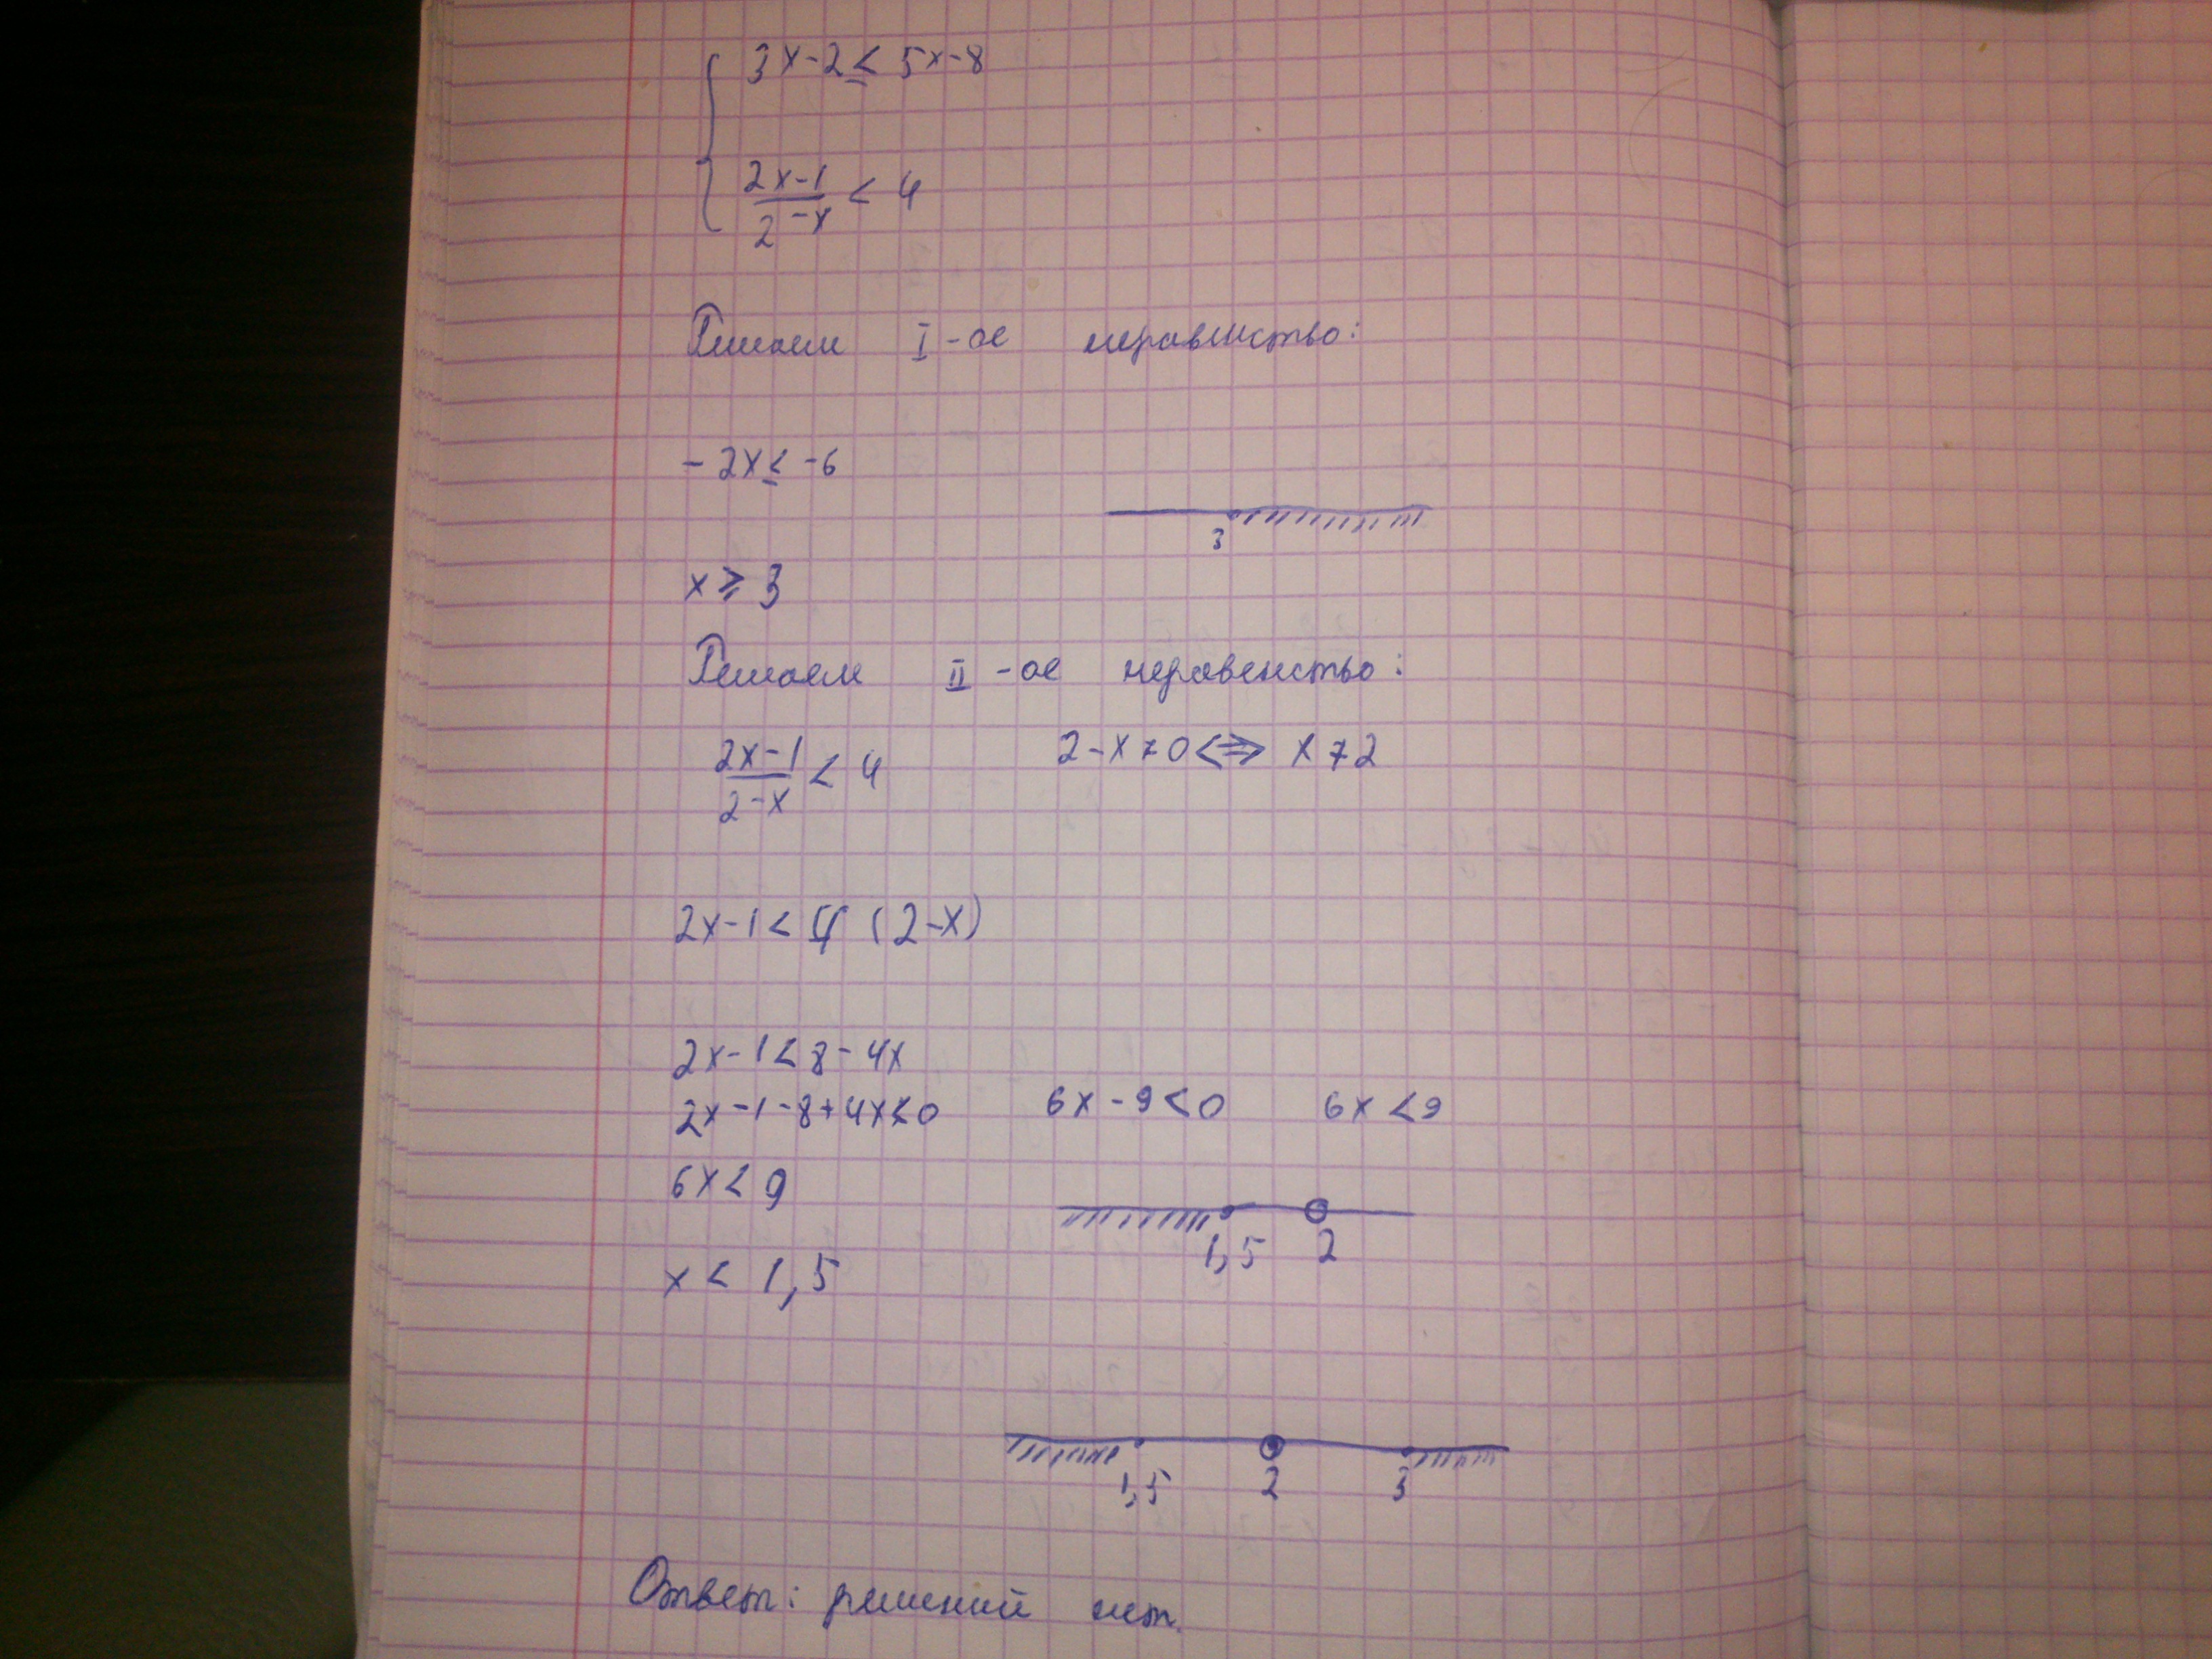 3x-2≤5x-8
2x-1
2-x < 4
Решаем I-ое неравенство:
-2x≤-6
3
x≥3
Решаем II-ое неравенство:
2x-1
2-x < 4 2-x≠0<=>x≠2
2x-1<4(2-x)
2x-1<8-4x
2x-1-8+4x<0 6x-9<0 6x<9
6x<9
1,5 2
x<1,5
1,5 2 3
Ответ: решений нет.